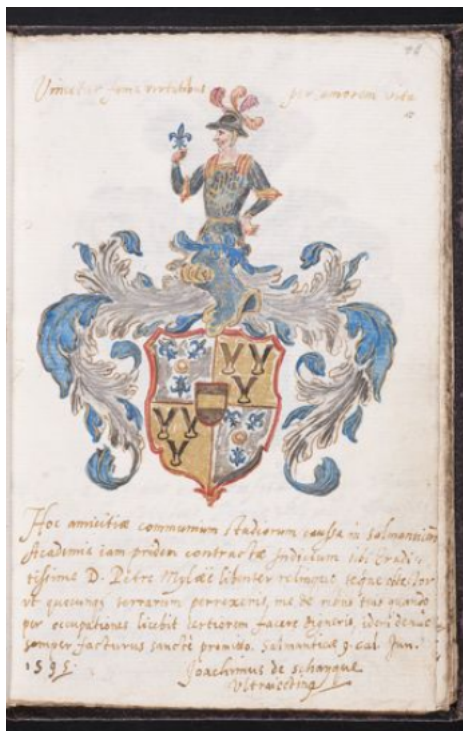 Vincitur fama virtutibus per amorem vita
Hoc amicitiæ communium studiorum caussa in Salmanticensi
Academia iam pridem contractæ Indicium tibi Erudi-
tissime D. Petre Mylæe libenter relinquo, teque
ut quocunque terrarum perrexeris, me de rebus tuis quando
per occupationes licebit certiorem facere digneris, idem denuo
semper facturus sanctè promitto. Salmanticæ 9. Cal. Jun.
1595.
Joachimus de schayque
Ultraiectinus